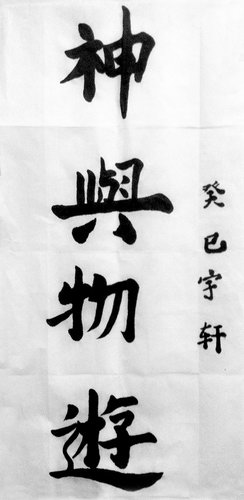 神與物遊
癸巳宇轩